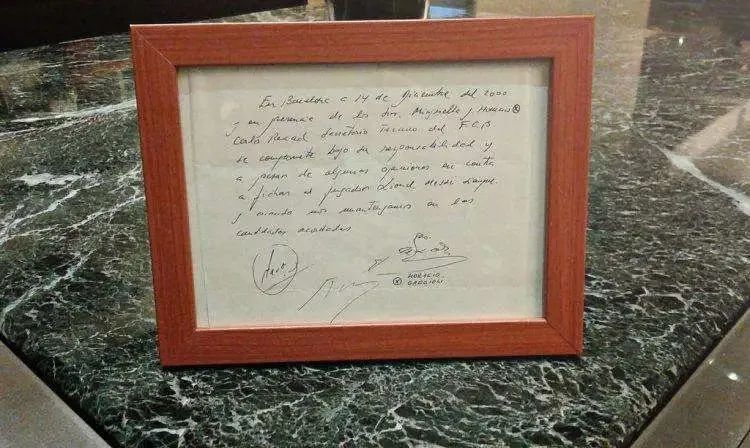 En Barcelona a 14 de Diciembre del 2000
y en presencia de los Sres. Minguella y Horacio ⓧ
Carles Rexach Secretario Técnico del F.C.B
se compromete bajo su responsabilidad y
a pesar de algunas opiniones en contra
a fichar al jugador Lionel Messi siempre
y cuando nos mantengamos en las
cantidades acordadas
ⓧ HORACIO
GAGGIOLI